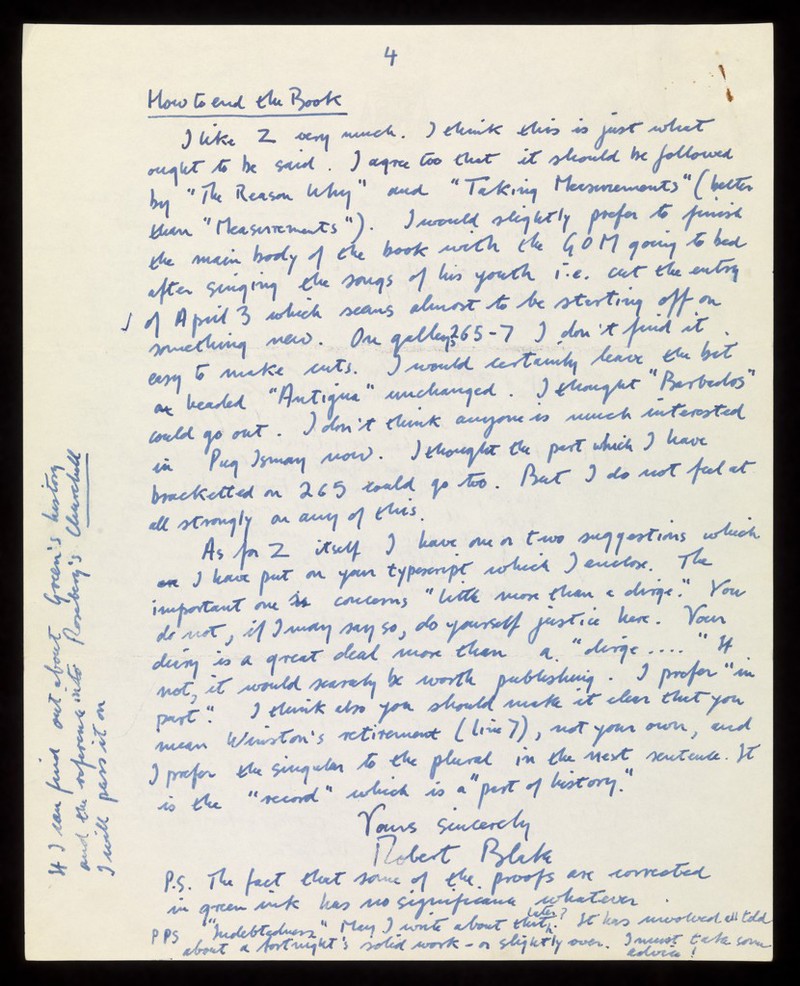 4
How to end the Book
I like Z very much. I think this is just what
ought to be said. I agree too that it should be followed
by "The Reason Why" and "Taking Measurements" (better
than "Measurements"). I would slightly prefer to finish
the main body of the book with the GOM going to bed
after singing the songs of his youth i.e. cut the entry
√ of April 3 which seems almost to be starting off on
something new. On galleys 265-7 I don't find it
easy to make cuts. I would certainly leave the bit
headed "Antigua" unchanged. I thought "Barbados"
could go out. I don't think anyone is much interested
in Pug Ismay now. I thought the part which I have
bracketted on 265 could go too. But I do not feel at
all strongly on any of this.
As for Z itself I have one or two suggestions which
I have put on your typescript which I enclose. The
important one concerns "little more than a dirge." You
do not, if I may say so, do yourself justice here. Your
diary is a great deal more than a "dirge ...." If
not, it would scarcely be worth publishing. I prefer "in
part". I think also you should make it clear that you
mean Winston's retirement (line 7), not your own, and
I prefer the singular to the plural in the next sentence. It
is the "record" which is a "part of history."
Yours sincerely
Robert Blake
P.S. The fact that some of the proofs are corrected
in green ink has no significance whatever.
PPS "Indebtedness" May I write about that later? It has involved all told
about a fortnight's solid work - or slightly over. I must take some
advice!
If I can find out about Green's history
and the reference into Rosebery's Churchill
I will pass it on